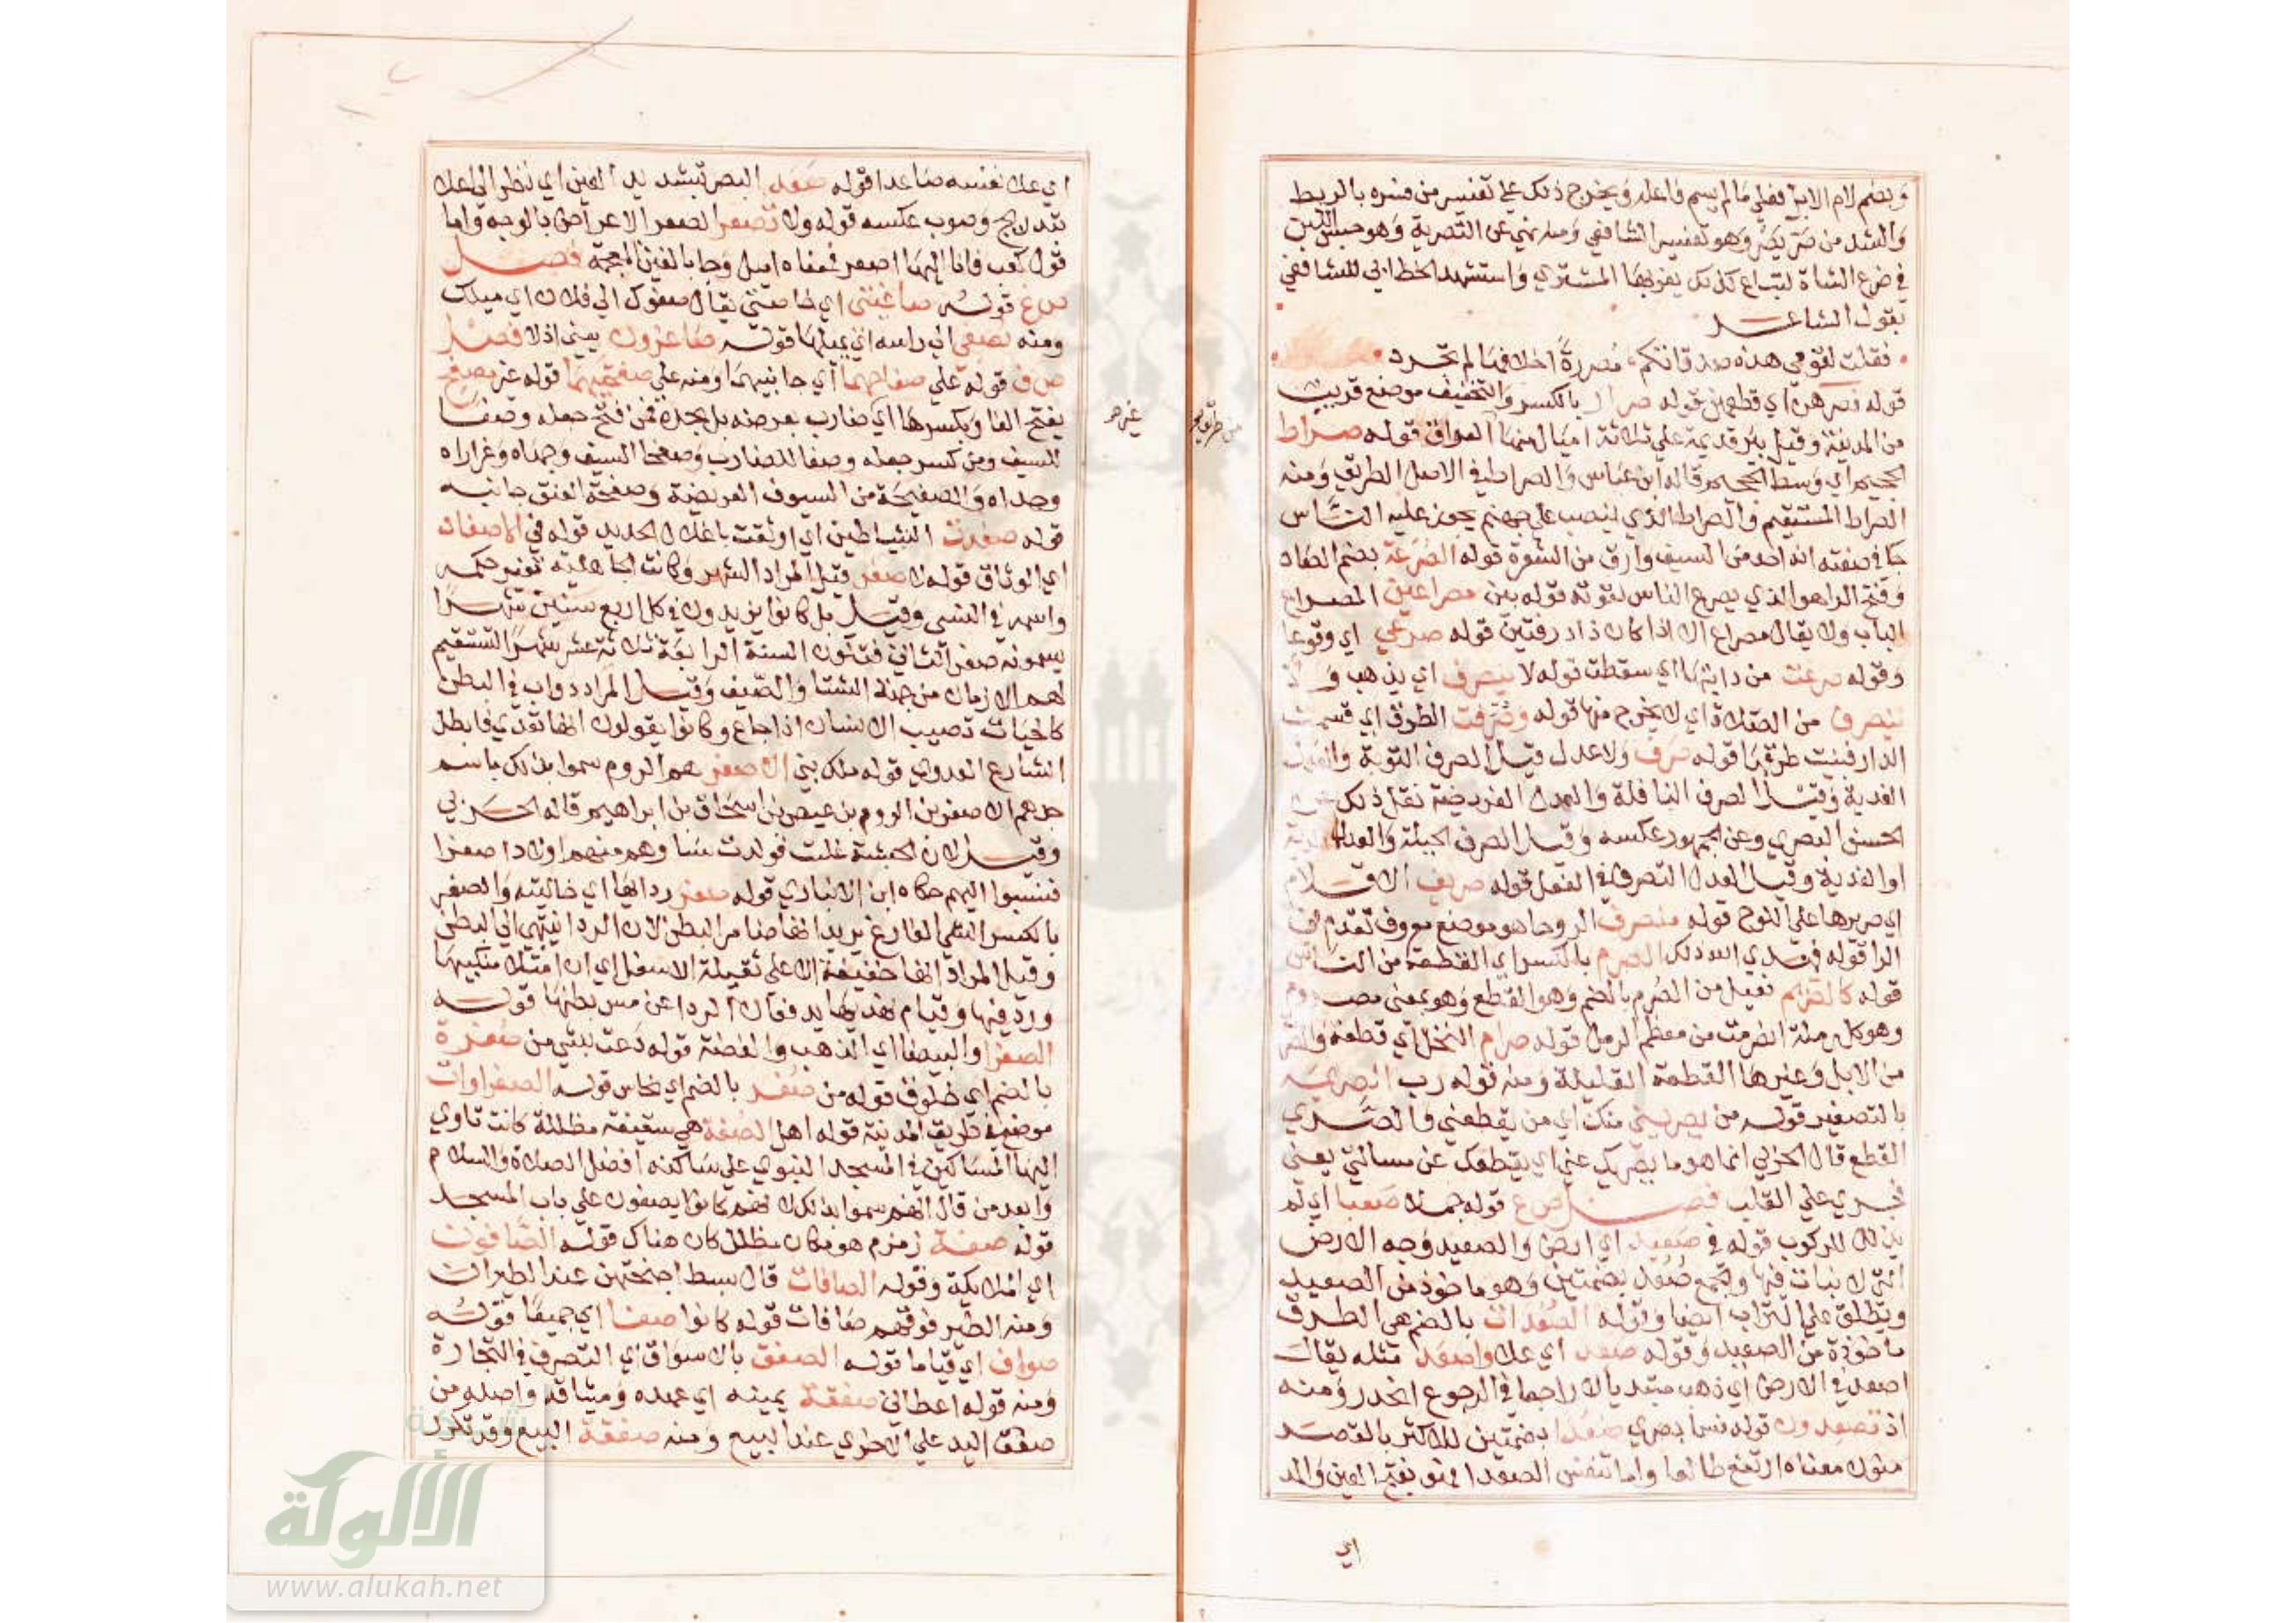 وبضم لام الابل فعلى ما لم يسم فاعله ويخرج ذلك على تفسير من فسره بالربط
والشد من صر يصر وهو تفسير الشافعي ومنه نهي عن التصرية وهو حبس اللبن
في ضرع الشاة لتباع كذلك يغر بها المشتري واستشهد الخطابي للشافعي
بقول الشاعر
فقلت لقومي هذه صدقاتكم مصررة اخلافها لم تجرد
قوله فصرهن اي قطعهن قوله صرار بالكسر والتخفيف موضع قريب
من المدينة وقيل بئر قديمة على ثلاثة اميال منها العراق قوله صراط
الجحيم اي وسط الجحيم قاله ابن عباس والصراط في الاصل الطريق ومنه
الصراط المستقيم والصراط الذي ينصب على جهنم يجوز عليه الناس
جا في صفته انه احد من السيف وارق من الشعرة قوله الصرعة بضم الصاد
وفتح الرا هو الذي يصرع الناس لقوته قوله بين مصراعين المصراع
الباب ولا يقال مصراع الا اذا كان ذا درفتين قوله صرعي اي وقوعا
وقوله صرعت من دابتها اي سقطت قوله لا ينصرف اي يذهب ولا
ينصرف من الصلاة اي لا يخرج منها قوله وصرفت الطرق اي قسمت
الدار فبنيت طرقها قوله صرف ولا عدل قيل الصرف التوبة والعدل
الفدية وقيل الصرف النافلة والعدل الفريضة نقل ذلك عن
الحسن البصري وعن الجمهور عكسه وقيل الصرف الحيلة والعدل الدية
او الفدية وقيل العدل التصرف في الفعل قوله صريف الاقلام
اي صريرها على اللوح قوله منصرف الروحا هو موضع معروف تقدم في
الرا قوله فهدي الله ذلك الصرم بالكسر اي القطعة من الناس
قوله كالصريم فعيل من الصرم بالضم وهو القطع وهو بمعنى مصروم
وهو كل رملة انصرمت من معظم الرمل قوله صرام النخل اي قطعه والصرم
من الابل وغيرها القطعة القليلة ومنه قوله رب الصريمة
بالتصغير قوله من يصريني منك اي من يقطعني والصري
القطع قال الحربي انما هو ما يصريك عني اي يقطعك عن مسالتي يعني
فجري على القلب فصل ص ع قوله جملا صعبا اي لم
يذلل للركوب قوله في صعيد اي ارض والصعيد وجه الارض
التي لا نبات فيها والجمع صعد بضمتين وهو ماخوذ من الصعيد
ويطلق على التراب ايضا وقوله الصعدات بالضم هي الطرق
ماخوذة من الصعيد وقوله صعد اي علا واصعد مثله يقال
اصعد في الارض اي ذهب مبتديا لا راجعا في الرجوع انحدر ومنه
اذ تصعدون قوله فسما بصري صعدا بضمتين للاكثر بالقصر
منون معناه ارتفع طالعا واما تنفس الصعدا فهو بفتح العين والمد
اي
من طريق
اي علا نفسه صاعدا قوله صعد البصر بتشديد العين اي نظر الى اعلا
بتدريج وصوب عكسه قوله ولا تصعر الصعر الاعراض بالوجه واما
قول كعب فانا اليها اصعر فمعناه اميل وجا بالغين المعجمة فصل
ص غ قوله صاغيتي اي خاصتي يقال صغوك الى فلان اي ميلك
ومنه يصغي الي راسه اي يميلها قوله صاغرون يعني اذلا فصل
ص ف قوله على صفاحهما اي جانبيهما ومنه على صفحتيهما قوله غير مصفح
بفتح الفا وبكسرها اي ضارب بعرضه بل بحده فمن فتح جعله وصفا
للسيف ومن كسر جعله وصفا للضارب وصفحا السيف وجهاه وغراراه
وحداه والصفيحة من السيوف العريضة وصفحة العنق جانبه
قوله صفدت الشياطين اي اوثقت باغلال الحديد قوله في الاصفاد
اي الوثاق قوله لا صفر قيل المراد الشهر وكانت الجاهلية تغير حكمه
واسمه في النسي وقيل بل كانوا يزيدون في كل اربع سنين شهرا
يسمونه صفر الثاني فتكون السنة الرابعة ثلاثة عشر شهرا لتستقيم
لهم الازمان من جهة الشتا والصيف وقيل المراد دواب في البطن
كالحيات تصيب الانسان اذا جاع وكانوا يقولون انها تعدي فابطل
الشارع العدوى قوله ملك بني الاصفر هم الروم سموا بذلك باسم
جدهم الاصفر بن الروم بن عيص بن اسحاق بن ابراهيم قاله الحربي
وقيل لان الحبشة غلبت فولدت نسا وهم منهم اولادا صفرا
فنسبوا اليهم حكاه ابن الانباري قوله صفر ردايها اي خاليته والصفر
بالكسر الشي الفارغ يريد انها ضامر البطن لان الردا ينتهي الى البطن
وقيل المراد انها خفيفة الاعلى ثقيلة الاسفل اي ان امتلا منكبيها
وردفيها وقيام نهديها يدفعان الردا عن مس بطنها قوله
الصفرا والبيضا اي الذهب والفضة قوله دعت بشي من صفرة
بالضم اي خلوق قوله من صفر بالضم اي نحاس قوله الصفراوات
موضع في طريق المدينة قوله اهل الصفة هي سقيفة مظللة كانت تاوي
اليها المساكين في المسجد النبوي على ساكنه افضل الصلاة والسلام
وابعد من قال انهم سموا بذلك لانهم كانوا يصفون على باب المسجد
قوله صفة زمزم هو مكان مظلل كان هناك قوله الصافون
اي الملايكة وقوله الصافات قال بسط اجنحتهن عند الطيران
ومنه الطير فوقهم صافات قوله كانوا صفا اي جميعا قوله
صواف اي قياما قوله الصفق بالاسواق اي التصرف في التجارة
ومنه قوله اعطاني صفقة يمينه اي عهده وميثاقه واصله من
صفق اليد على الاخرى عند البيع ومنه صفقة البيع وقد تكرر
شبكة
الألوكة
www.alukah.net